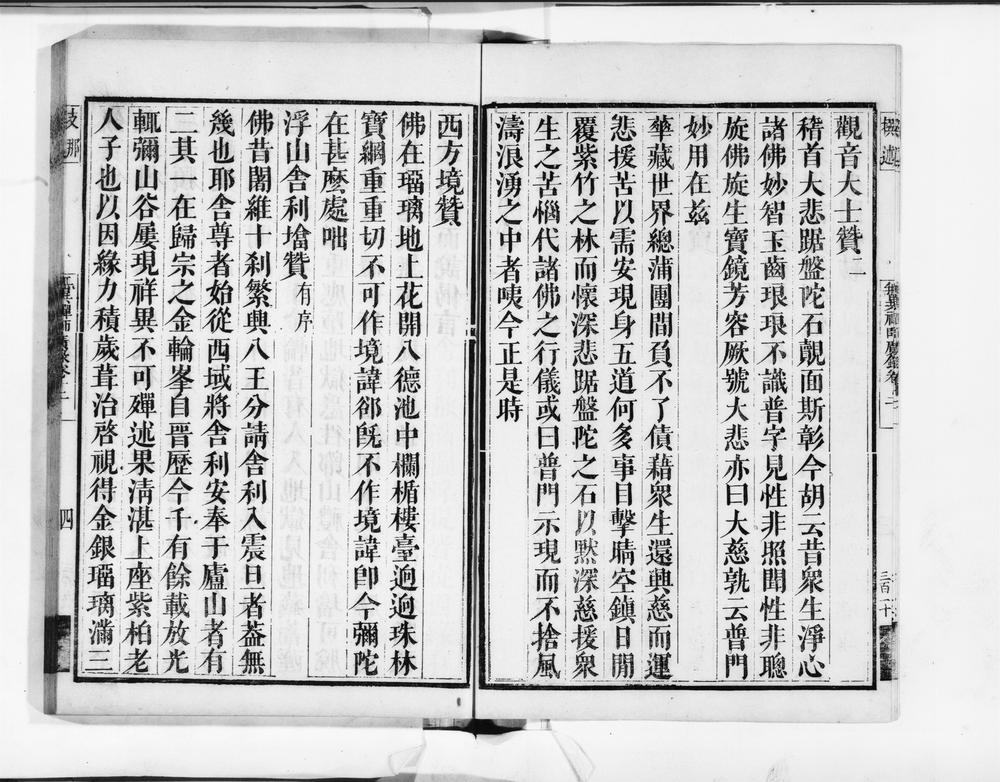 觀音大士贊二
稽首大悲踞盤陀石覿面斯彰今胡云昔眾生淨心
諸佛妙智玉齒琅琅不識普字見性非照聞性非聽
旋佛旋生寶鏡芳容厥號大悲亦曰大慈孰云普門
妙用在兹
華藏世界總蒲團間負不了債藉眾生還興慈而運
悲援苦以需安現身五道何多事目擊睛空鎮日閒
覆紫竹之林而懷深悲踞盤陀之石以默深慈援眾
生之苦惱代諸佛之行儀或曰普門示現而不捨風
濤浪湧之中者咦今正是時
西方境贊
佛在瑠璃地上花開八德池中欄楯樓臺逈逈珠林
寶網重重切不可作境諱郤旣不作境諱卽今彌陀
在甚麽處咄
浮山舍利塔贊有序
佛昔闍維十刹繁興八王分請舍利入震旦者葢無
幾也耶舍尊者始從西域將舍利安奉于廬山者有
二其一在歸宗之金輪峯自晋歷今千有餘載放光
輒彌山谷屢現祥異不可殫述果清湛上座紫柏老
人子也以因緣力積歲葺治啓視得金銀瑠璃滿三
支那
四
三百二十